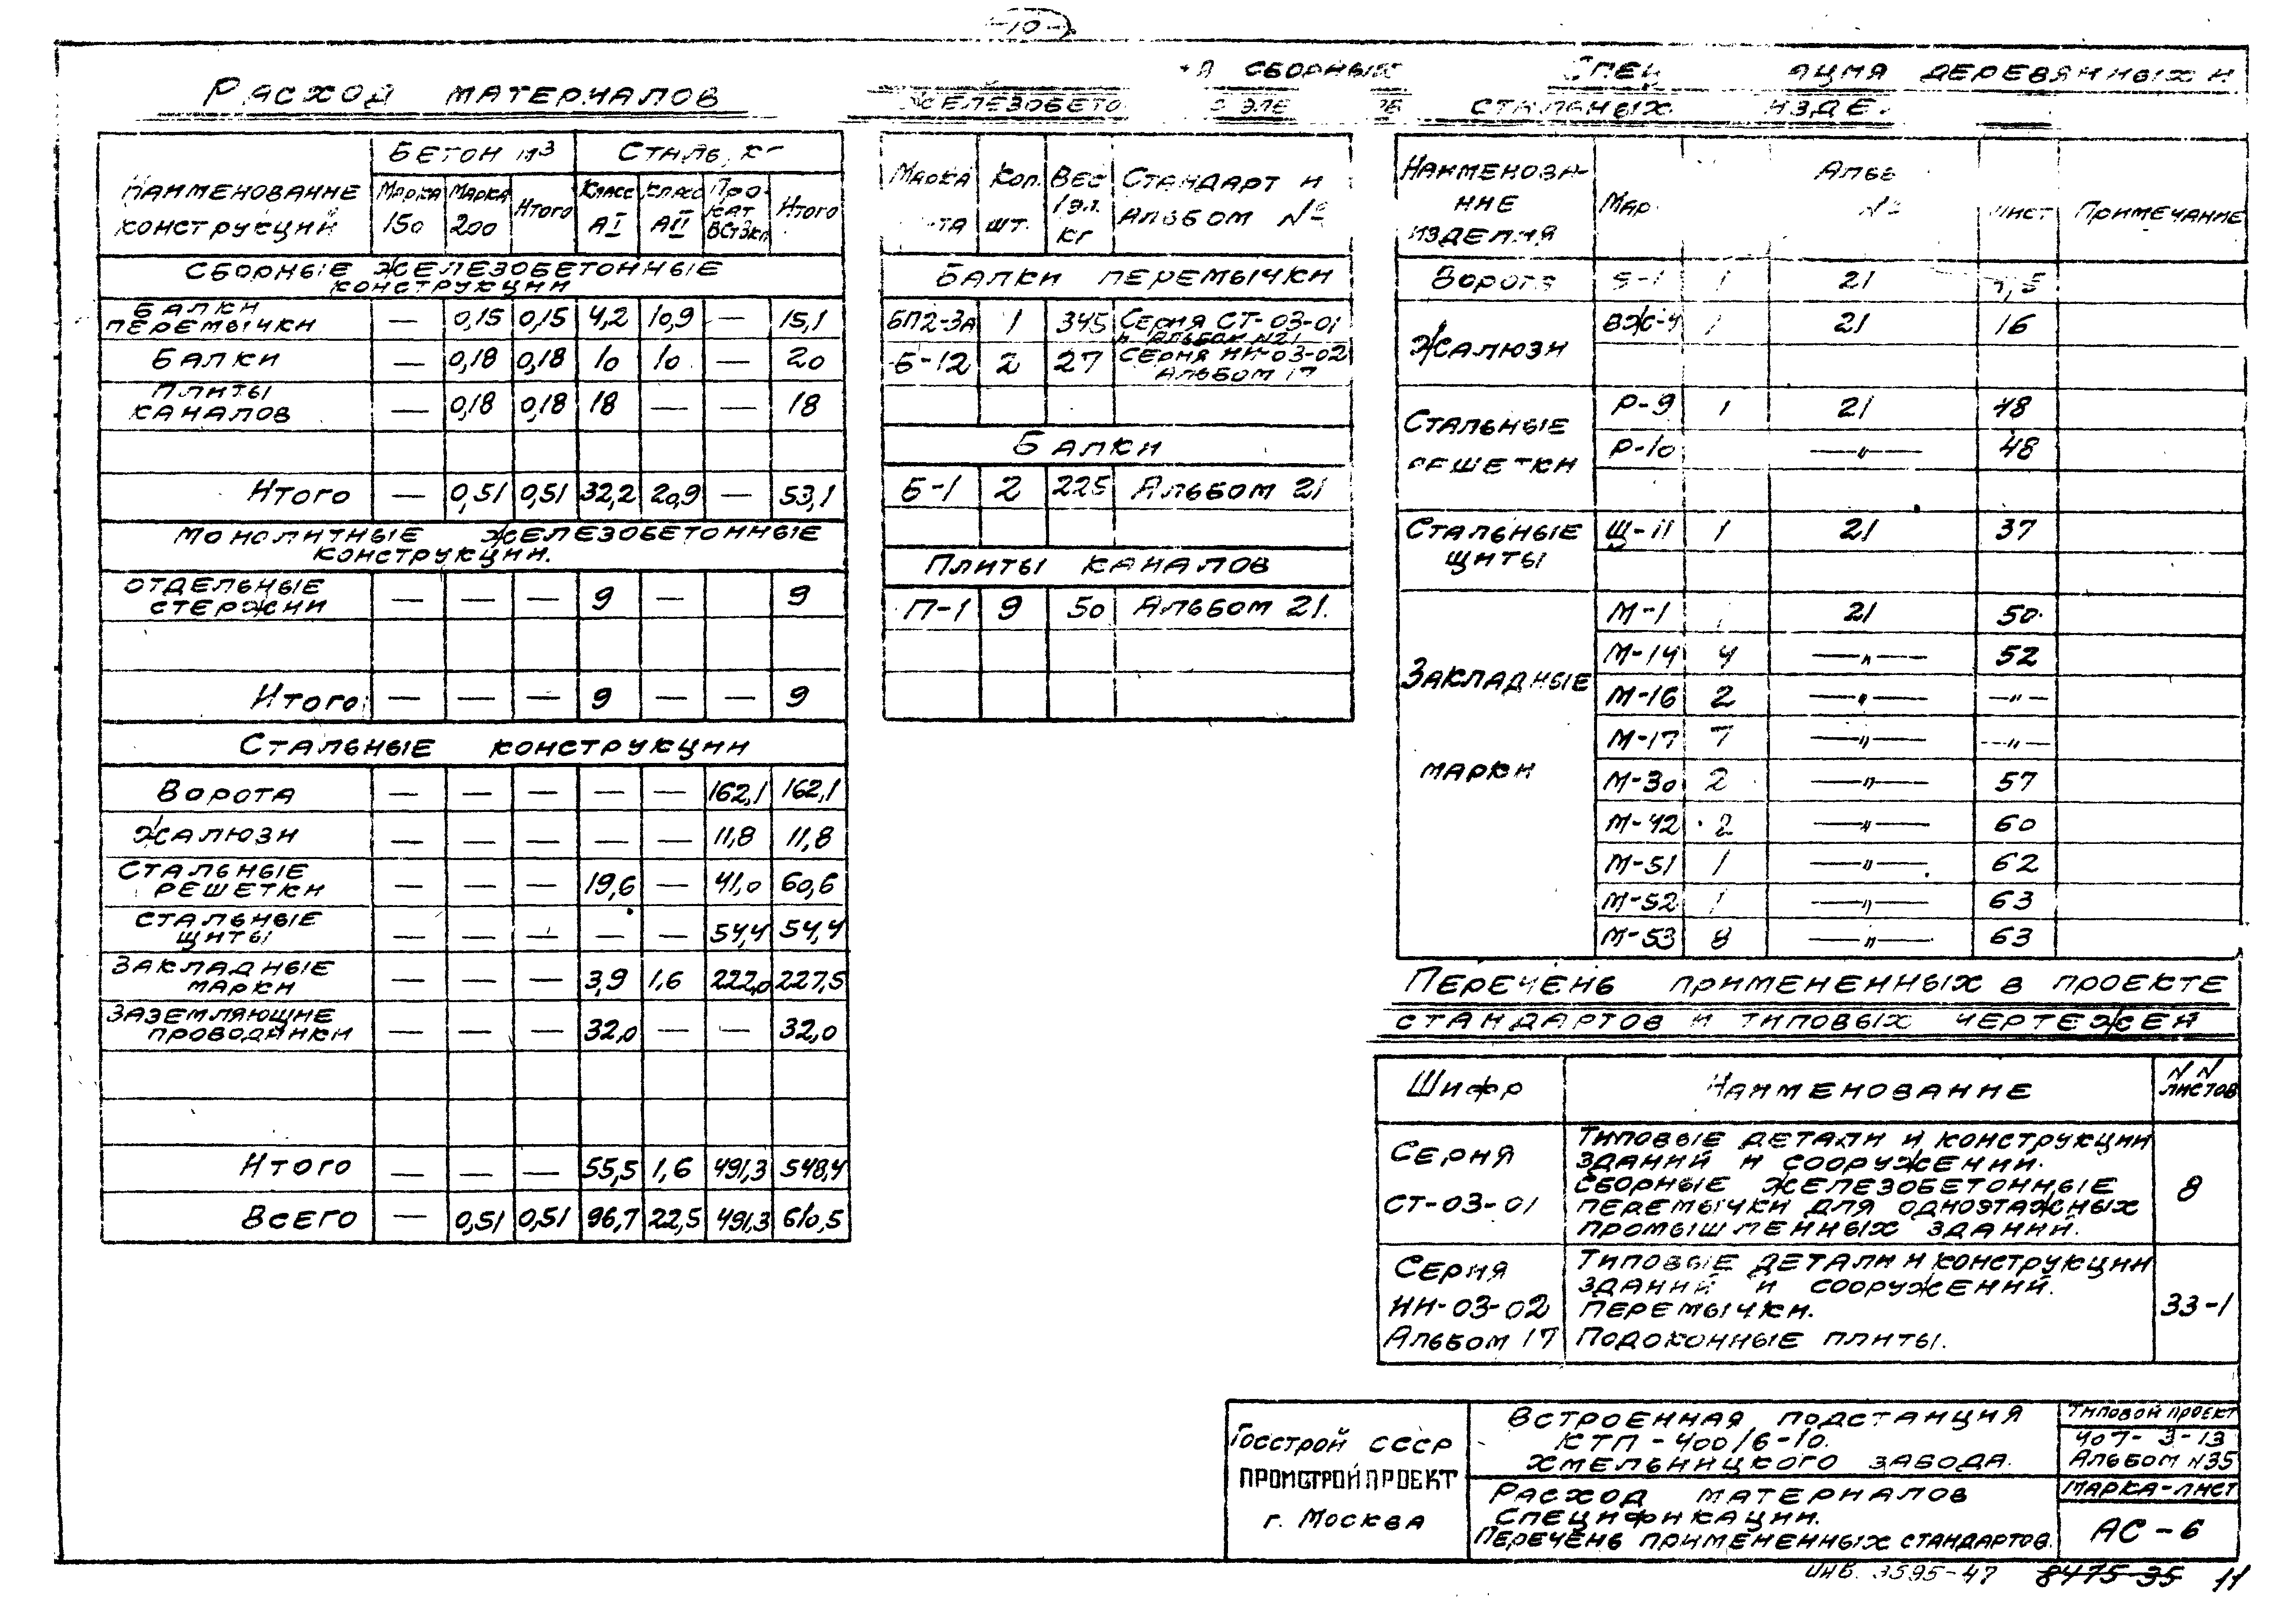 -10-
Расход материалов
Наименование конструкций
Бетон м3
Сталь, кг
Марка 150
Марка 200
Итого
Класс АI
Класс АII
Прокат ВСт3кп
Итого
Сборные железобетонные конструкции
Балки перемычки — 0,15 0,15 4,2 10,9 — 15,1
Балки — 0,18 0,18 10 10 — 20
Плиты каналов — 0,18 0,18 18 — — 18
Итого — 0,51 0,51 32,2 20,9 — 53,1
Монолитные железобетонные
конструкции.
Отдельные стержни — — — 9 — 9
Итого: — — — 9 — — 9
Стальные конструкции
Ворота — — — — — 162,1 162,1
Жалюзи — — — — — 11,8 11,8
Стальные решетки — — — 19,6 — 41,0 60,6
Стальные щиты — — — — — 54,4 54,4
Закладные марки — — — 3,9 1,6 222,0 227,5
Заземляющие проводники — — — 32,0 — — 32,0
Итого — — — 55,5 1,6 491,3 548,4
Всего — 0,51 0,51 96,7 22,5 491,3 610,5
сборные
Марка
Кол. шт.
Вес 1 эл. кг
Стандарт и Альбом №
Балки перемычки
БП2-3А 1 345 Серия СТ-03-01
Альбом №21
Б-12 2 27 Серия ИИ-03-02
Альбом 17
Балки
Б-1 2 225 Альбом 21
Плиты каналов
П-1 9 50 Альбом 21.
деревянных и
стальных
Наименование изделия
Мар.
№
лист
Примечание
Ворота 1 21
Жалюзи ВЖ-4 1 21 16
Стальные решетки
Р-9 1 21 48
Р-10 —"— 48
Стальные щиты Щ-11 1 21 37
Закладные марки
М-1 21 50
М-14 4 —"— 52
М-16 2 —"— —"—
М-17 7 —"— —"—
М-30 2 —"— 57
М-42 2 —"— 60
М-51 1 —"— 62
М-52 1 —"— 63
М-53 8 —"— 63
Перечень примененных в проекте
стандартов и типовых чертежей
Шифр
Наименование
NN листов
Серия
СТ-03-01
Типовые детали и конструкции
зданий и сооружений.
Сборные железобетонные
перемычки для одноэтажных
промышленных зданий.
8
Серия
ИИ-03-02
Альбом 17
Типовые детали и конструкции
зданий и сооружений.
Перемычки.
Подоконные плиты.
33-1
Госстрой СССР
ПРОМСТРОЙПРОЕКТ
г. Москва
Встроенная подстанция
КТП-400/6-10.
Хмельницкого завода.
Расход материалов
Спецификации.
Перечень примененных стандартов.
Типовой проект
407-3-13
Альбом №35
Марка-лист
АС-6
Инв. 3595-47
8475-35 11